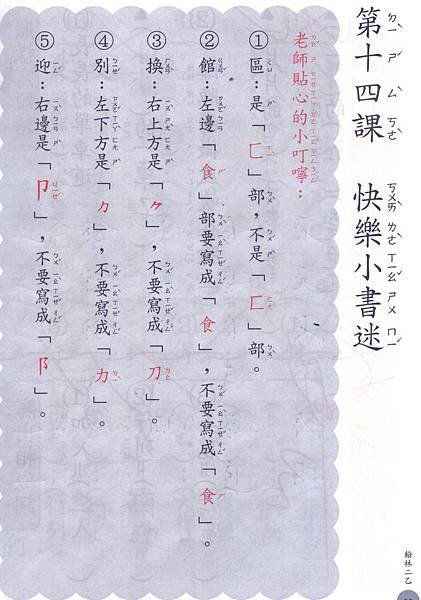 第十四課　快樂小書迷
老師貼心的小叮嚀：
①區：是「匸」部，不是「匚」部。
②館：左邊「飠」部要寫成「飠」，不要寫成「食」。
③換：右上方是「⺈」，不要寫成「刀」。
④別：左下方是「力」，不要寫成「力」。
⑤迎：右邊是「卩」，不要寫成「阝」。
翰林二乙